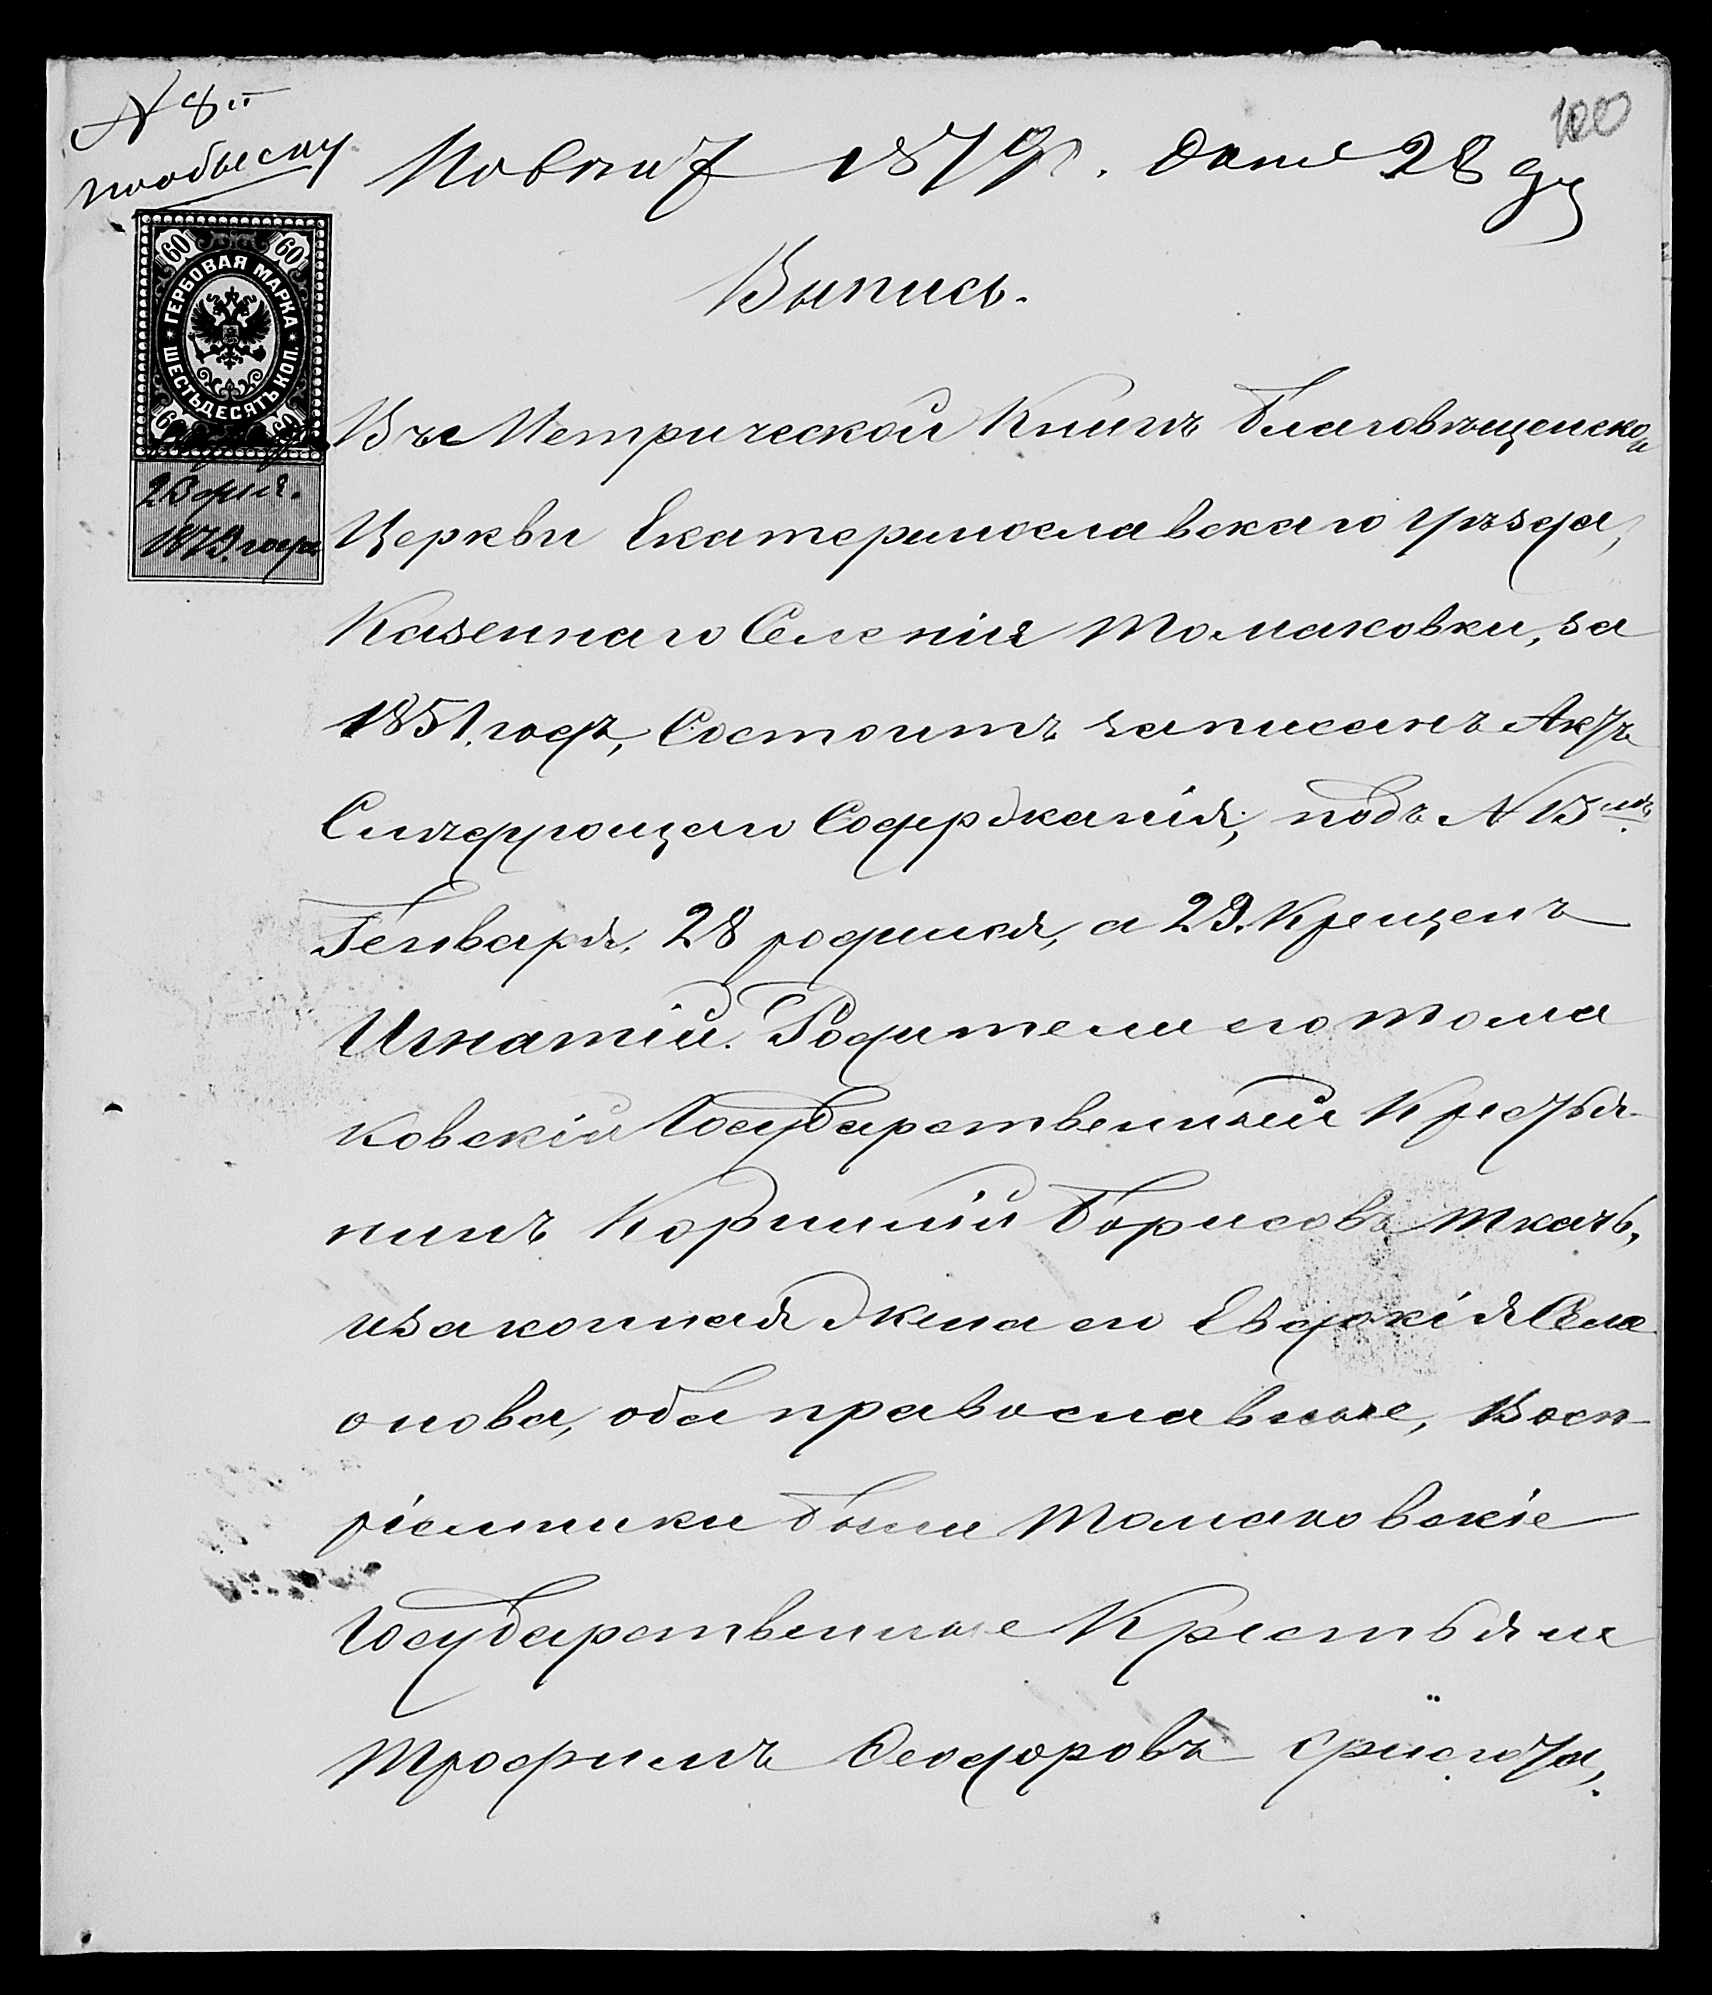 № 8й
по обыску
100
1879 г. дня 28
60 60
ГЕРБОВАЯ МАРКА
ШЕСТЬДЕСЯТЪ КОП.
1879 года
Выпись.
Въ Метрической Книгѣ Благовѣщенской
Церкви Екатеринославскаго уѣзда,
Казеннаго Селенія Томаковки, за
1851. годъ, Состоитъ записанъ Актъ
Слѣдующаго Содержанія; подъ № 15мъ.
Генваря. 28 родился, а 29. Крещенъ
Игнатій. Родители его тома
ковскій Государственный Крестья-
нинъ Корнилій Борисовъ Ткачь,
и законная жена его Евдокія Сема
онова, оба православные, Восп-
ріемники были Томаковскіе
Государственные Крестьяне
Трофимъ Феодоровъ